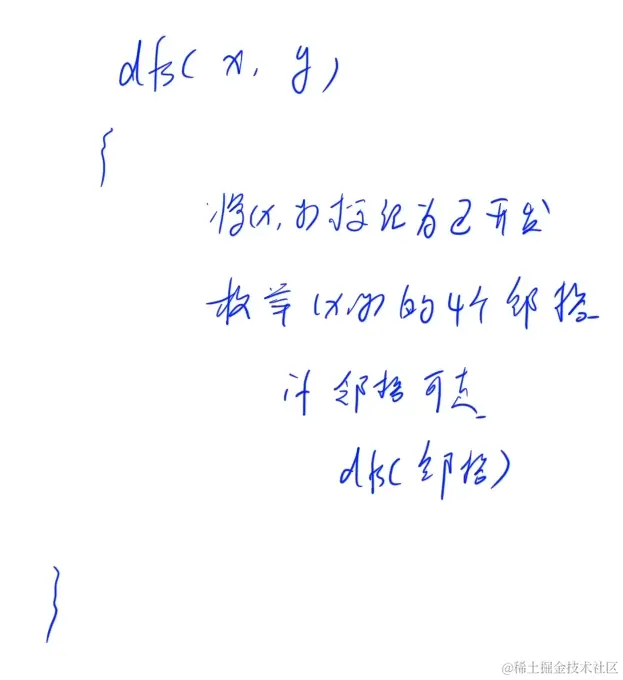 dfs(x, y)
{
将(x,y)标记为已开发
枚举(x,y)的4个邻格
if 邻格可走
dfs(邻格)
}
@稀土掘金技术社区